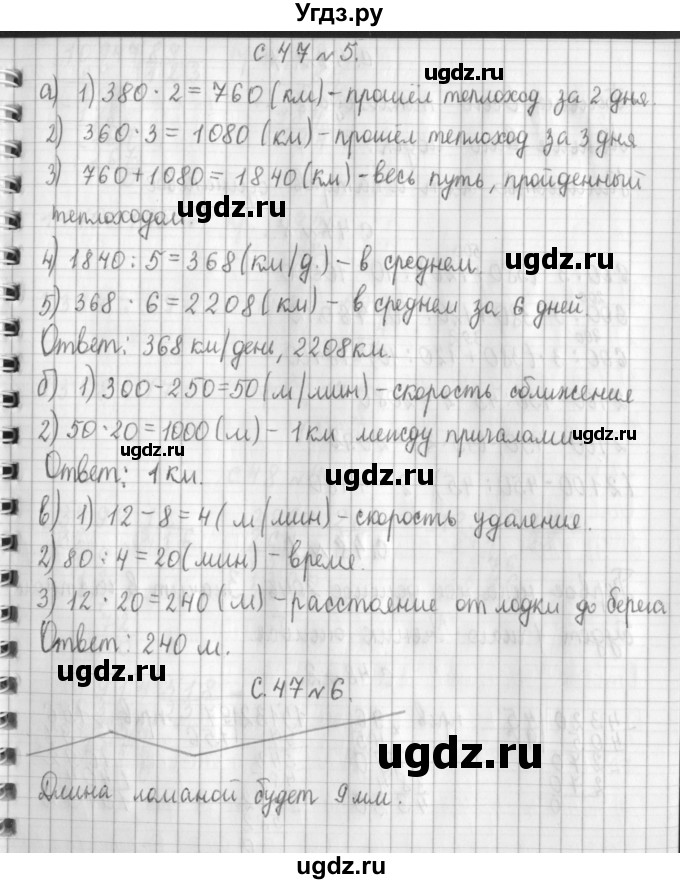 Угдз.ру
с. 47 №5.
а) 1) 380 · 2 = 760 (км) – прошёл теплоход за 2 дня.
2) 360 · 3 = 1080 (км) – прошёл теплоход за 3 дня
3) 760 + 1080 = 1840 (км) – весь путь, пройденный
теплоходом.
4) 1840 : 5 = 368 (км/д.) – в среднем.
5) 368 · 6 = 2208 (км) – в среднем за 6 дней.
Ответ: 368 км/день, 2208 км.
б) 1) 300 – 250 = 50 (м/мин) – скорость сближения
2) 50 · 20 = 1000 (м) – 1 км между причалами
Ответ: 1 км.
в) 1) 12 – 8 = 4 (м/мин) – скорость удаление.
2) 80 : 4 = 20 (мин) – време.
3) 12 · 20 = 240 (м) – расстояние от лодки до берега
Ответ: 240 м.
с. 47 №6.
Длина ломаной будет 9 мм.
ugdz.ru
ugdz.ru
ugdz.ru
ugdz.ru
ugdz.ru
ugdz.ru
ugdz.ru
ugdz.ru
ugdz.ru
ugdz.ru
ugdz.ru